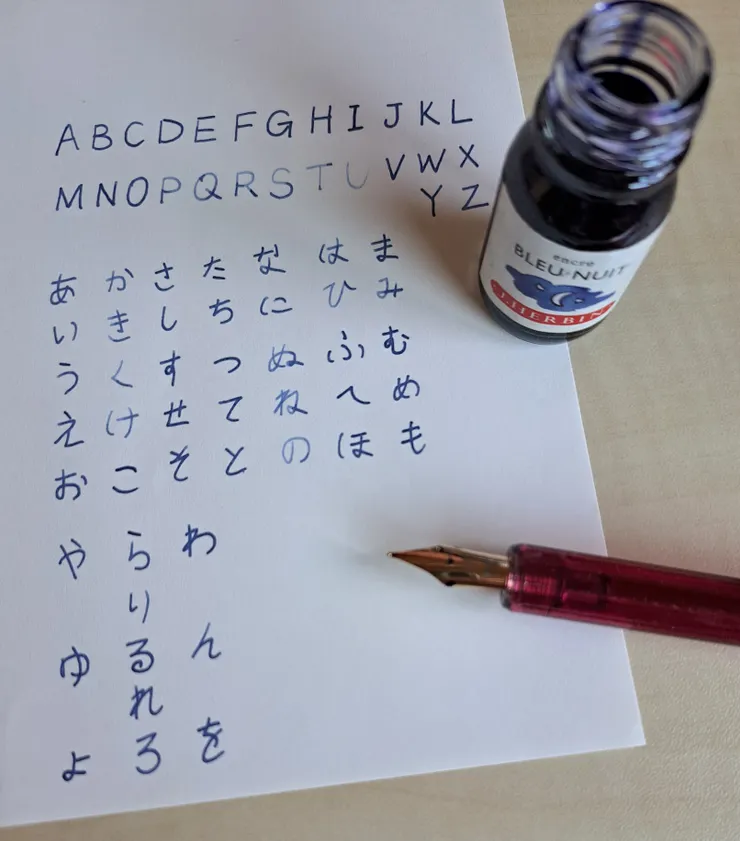 ABCDEFGHIJKL
MNOPQRSTUVWX
YZ
あ か さ た な は ま
い き し ち に ひ み
う く す つ ぬ ふ む
え け せ て ね へ め
お こ そ と の ほ も
や ら わ
り
ゆ る ん
れ
よ ろ を
encre
BLEU NUIT
J.HERBIN